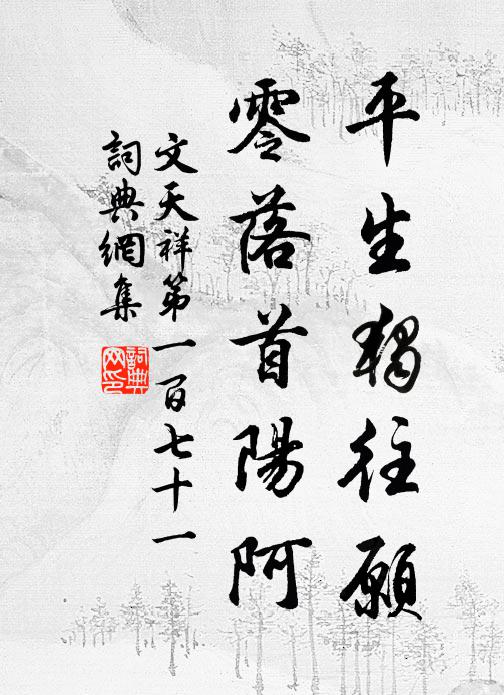 平生獨往願
零落首陽阿
文天祥第一百七十一
詞典網集
詞典网印